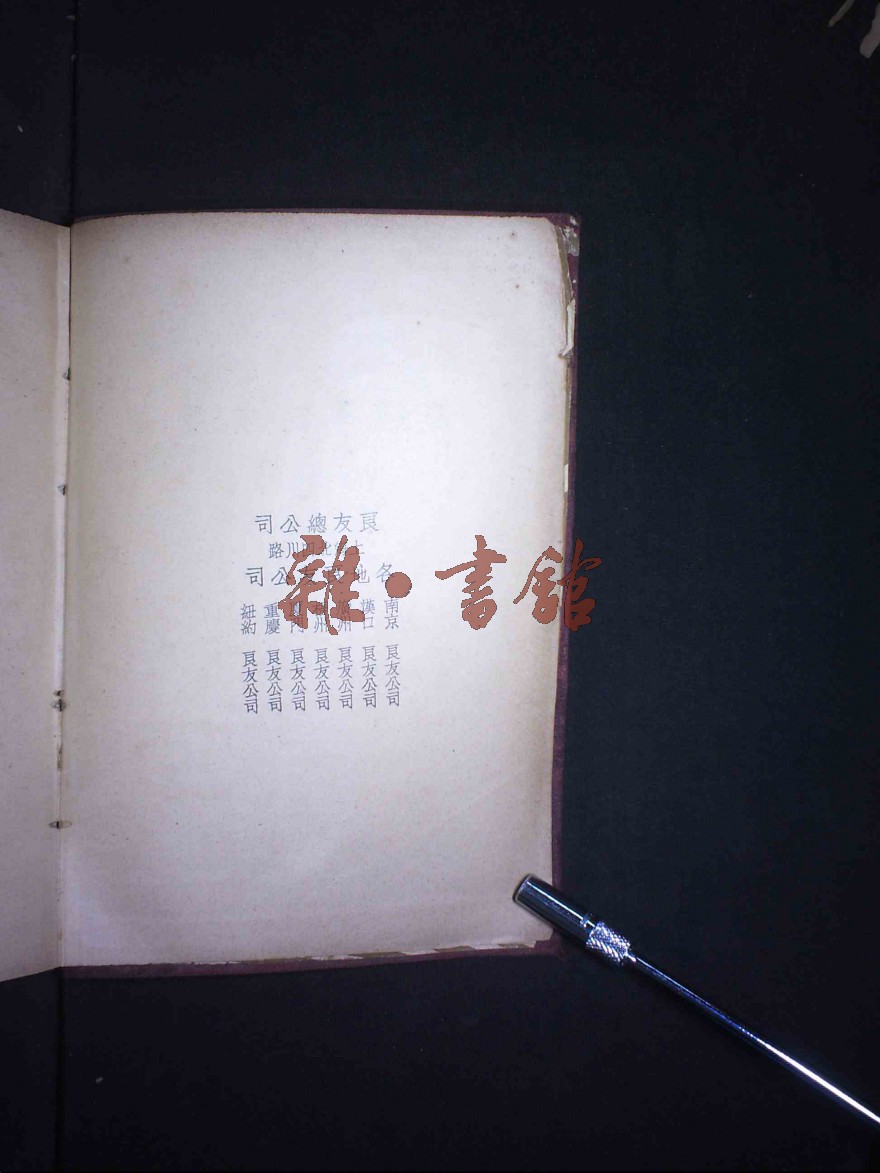 良友總公司
上海北四川路
各地良友公司
南京 良友公司
漢口 良友公司
州 良友公司
州 良友公司
廈門 良友公司
重慶 良友公司
紐約 良友公司
雜·書館